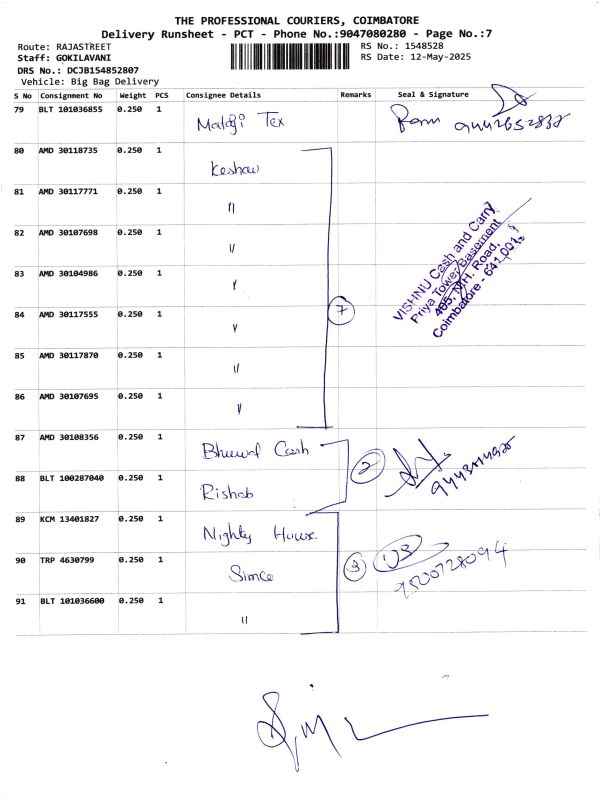 THE PROFESSIONAL COURIERS, COIMBATORE
Delivery Runsheet - PCT - Phone No.:9047080280 - Page No.:7
Route: RAJASTREET
RS No.: 1548528
Staff: GOKILAVANI
RS Date: 12-May-2025
DRS No.: DCJB154852807
Vehicle: Big Bag Delivery
S No Consignment No Weight PCS Consignee Details Remarks Seal & Signature
79 BLT 101036855 0.250 1 Tex
80 AMD 30118735 0.250 1 Keshav
81 AMD 30117771 0.250 1 "
82 AMD 30107698 0.250 1 "
83 AMD 30104986 0.250 1 "
7
84 AMD 30117555 0.250 1 "
85 AMD 30117870 0.250 1 "
86 AMD 30107695 0.250 1 "
VISHNU Cash and Carry
Priya Tower Basement
405, N.H. Road,
Coimbatore - 641 001.
87 AMD 30108356 0.250 1 Cash
2
88 BLT 100287040 0.250 1 Rishab
89 KCM 13401827 0.250 1 Nighty House
90 TRP 4630799 0.250 1 Simco 3
9500728094
91 BLT 101036600 0.250 1 "